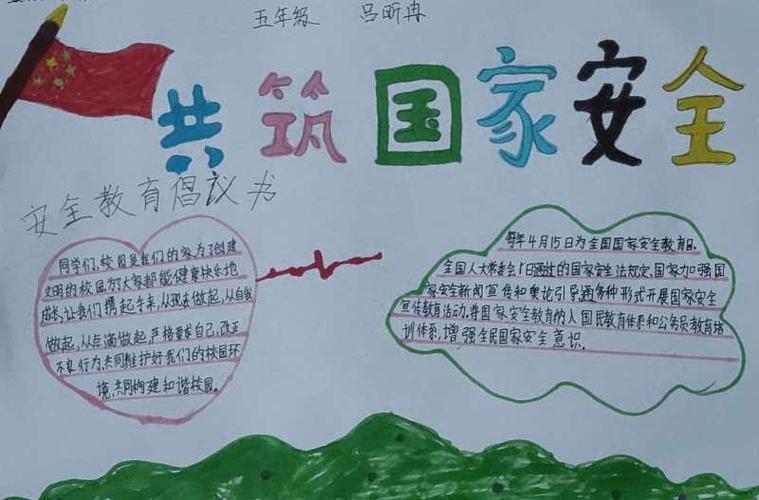 五年级 吕昕冉
共筑国家安全
安全教育倡议书
同学们,校园是我们的家为了创建
文明的校园,为了大家都能健康快乐地
成长,让我们携起手来,从现在做起,从自我
做起,从点滴做起,严格要求自己,改正
不良行为,共同维护好我们的校园环
境,共同构建和谐校园。
每年4月15日为全国国家安全教育日。
全国人大常委会1日通过的国家安全法规定,国家加强国
家安全新闻宣传和舆论引导,通过多种形式开展国家安全
宣传教育活动,将国家安全教育纳入国民教育体系和公务员教育培
训体系,增强全民国家安全意识。